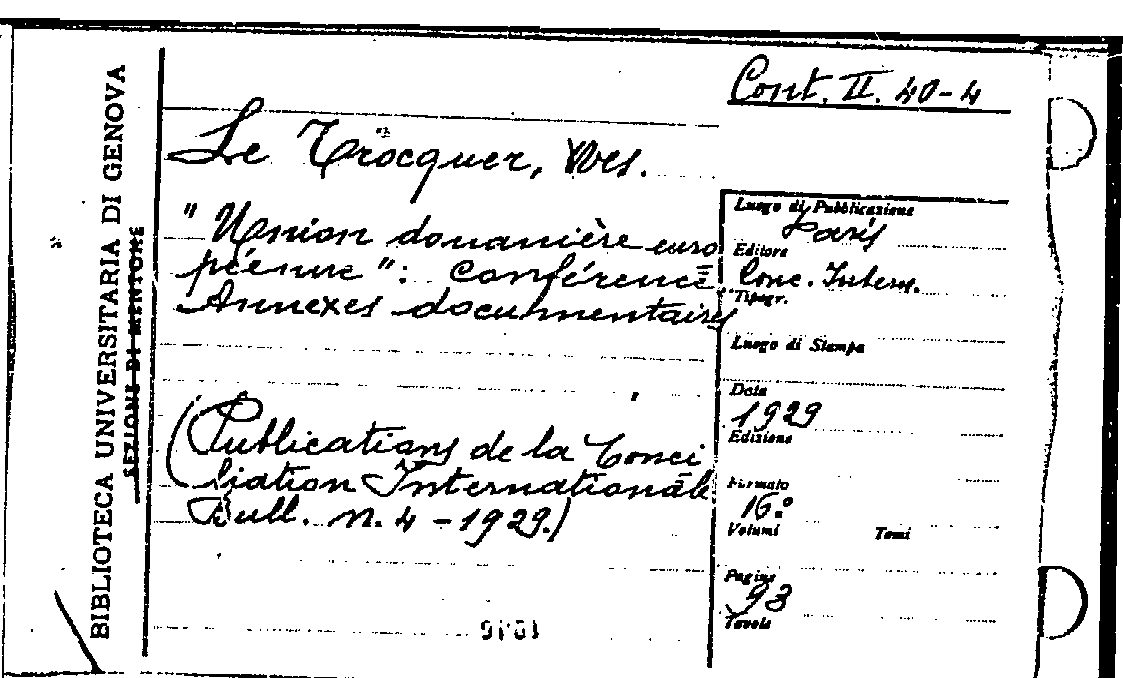 BIBLIOTECA UNIVERSITARIA DI GENOVA
SEZIONE DI MENTONE
Cont. II. 40-4
Le Trocquer, Yves.
"Union douanière euro
péenne": Conférence =
Annexes documentaires
(Publications de la Conci
liation Internationale
Bull. n. 4 - 1929.)
Luogo di Pubblicazione
Paris
Editore
Conc. Intern.
Tipogr.
Luogo di Stampa
Data
1929
Edizione
Formato
16.°
Volumi Tomi
Pagine
93
Tavole